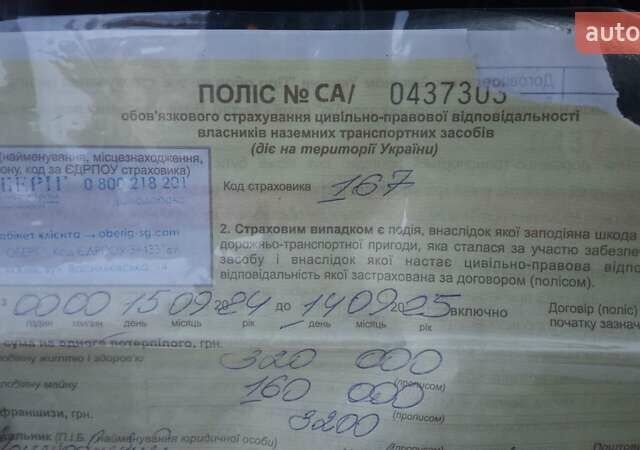 auto
Договор
ПОЛІС № СА/ 0437303
обов'язкового страхування цивільно-правової відповідальності
власників наземних транспортних засобів
(діє на території України)
(найменування, місцезнаходження,
ону, код за ЄДРПОУ страховика)
0 800 218 201
Код страховика 167
абінет клієнта → oberig-sg.com
2. Страховим випадком є подія, внаслідок якої заподіяна шкода
дорожньо-транспортної пригоди, яка сталася за участю забезпе
засобу і внаслідок якої настає цивільно-правова відпо
відповідальність якої застрахована за договором (полісом).
з 00 00 15 09 2024 до 14 09 2025 включно Договір (поліс)
годин хвилин день місяць рік день місяць рік початку зазна
сума на одного потерпілого, грн.
320 000
одіяну життю і здоров'ю
(прописом)
одіяну майну 160 000
франшизи, грн. 3200 (прописом)
альник (П.І.Б. (найменування юридичної особи) Поштов